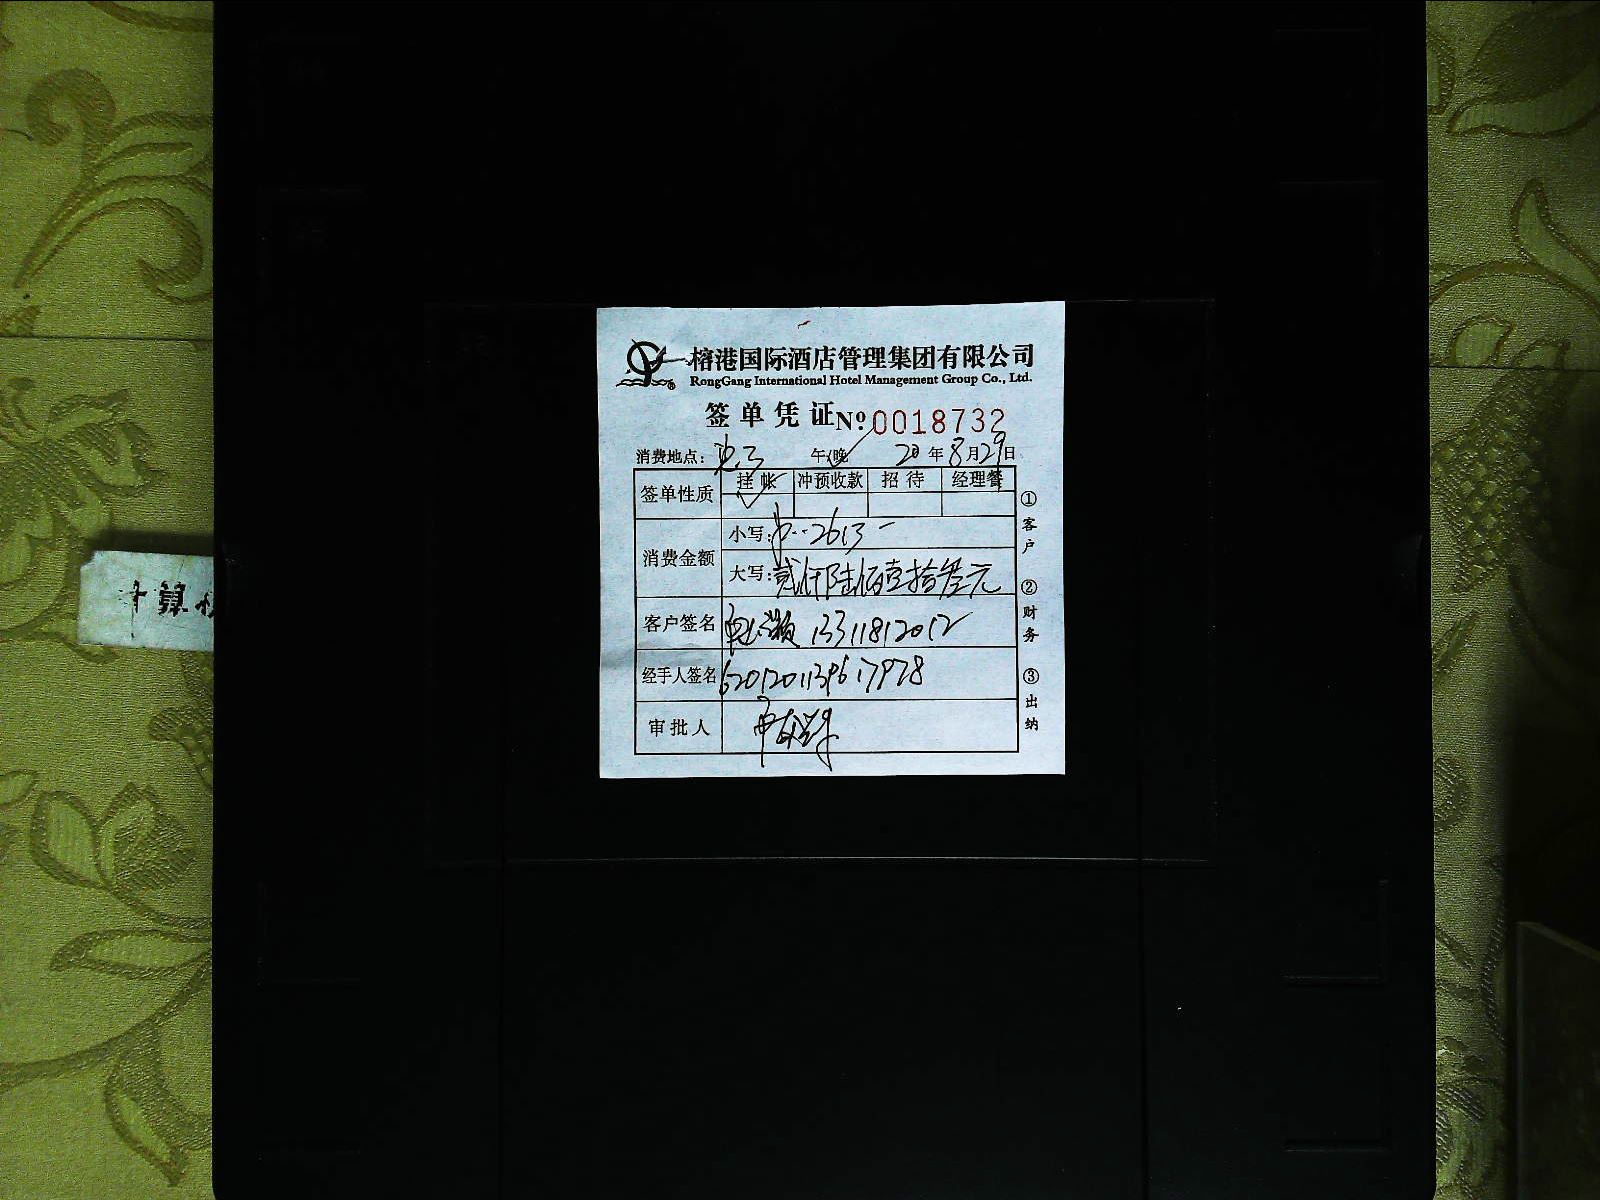 榕港国际酒店管理集团有限公司
RongGang International Hotel Management Group Co., Ltd.
签单凭证 Nº 0018732
消费地点: 午/晚 20 年 8 月 29 日
签单性质 挂帐 冲预收款 招待 经理餐
消费金额 小写: 2613
大写: 贰仟陆佰壹拾叁元
客户签名 13311812012
经手人签名 6201201139617978
审批人
①客户 ②财务 ③出纳
计算